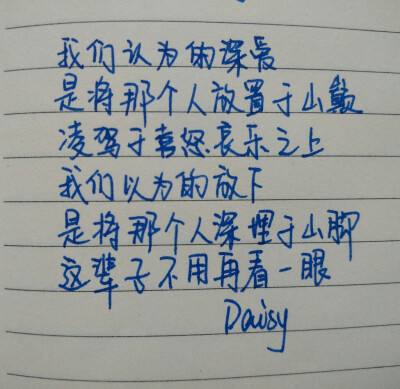 我们认为的深爱
是将那个人放置于山巅
凌驾于喜怒哀乐之上
我们以为的放下
是将那个人深埋于山脚
这辈子不用再看一眼
Daisy